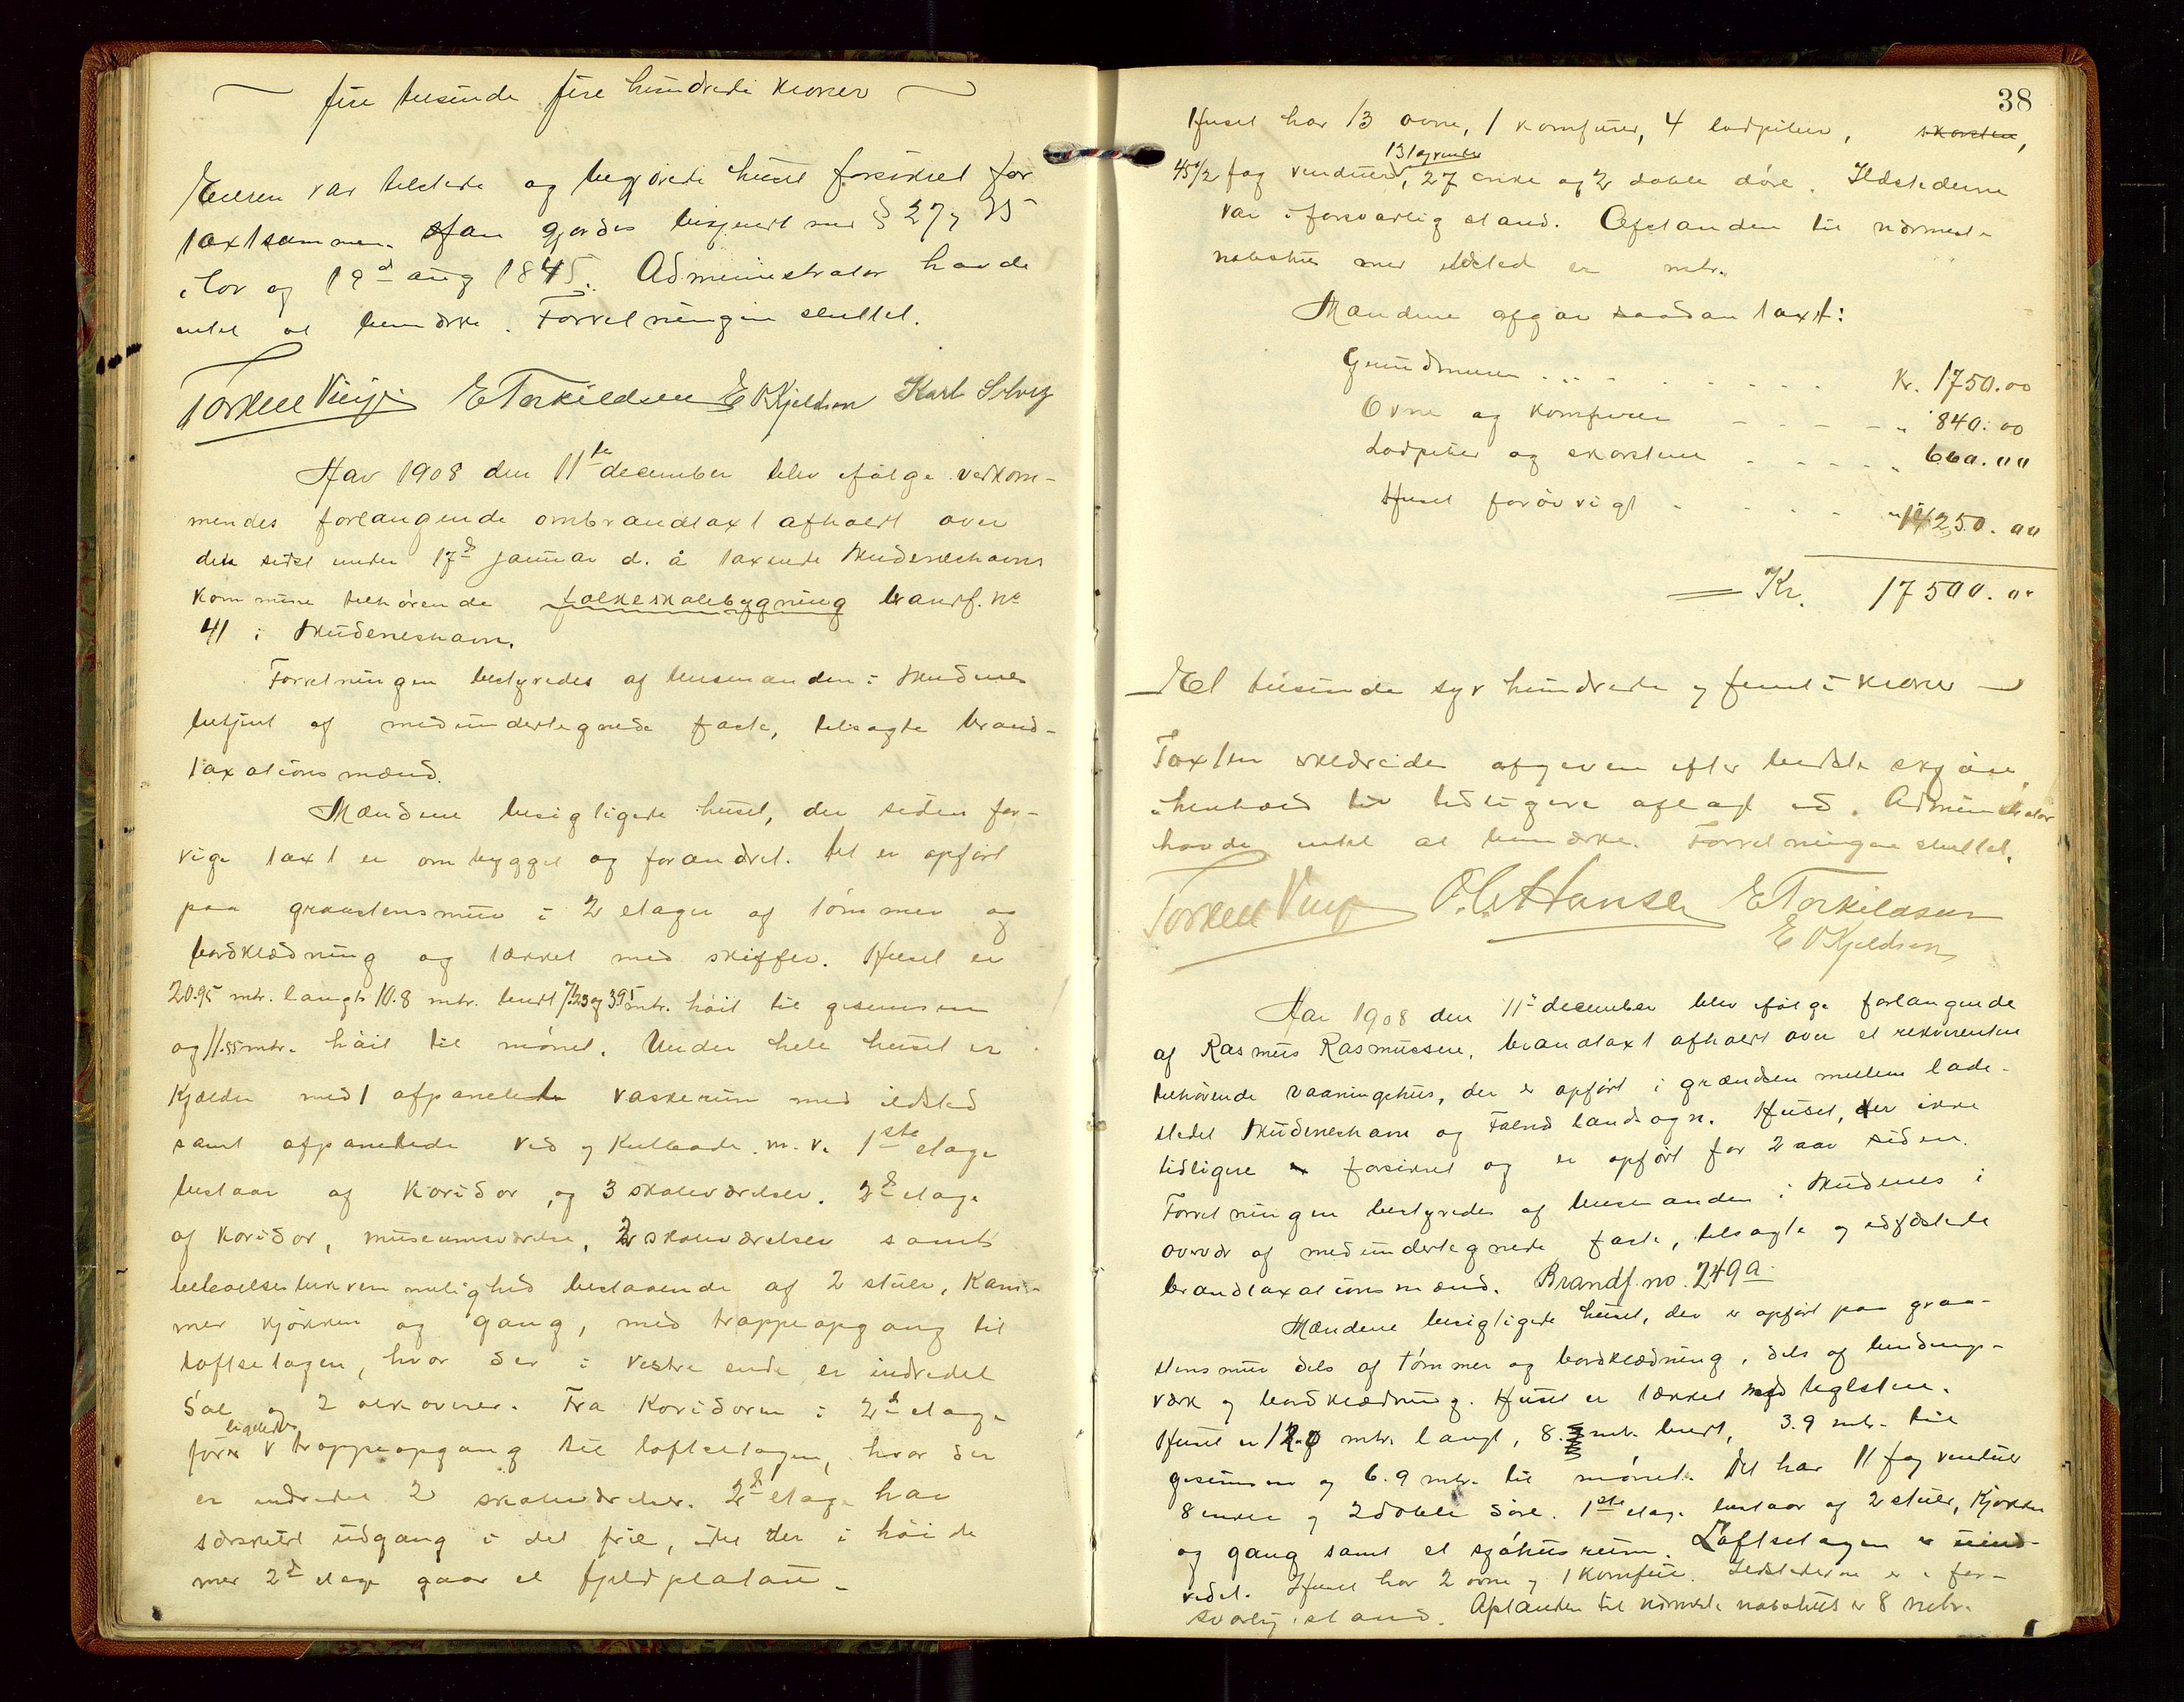 fire tusinde fire hundrede kroner
Eieren var tilstede og begjærede huset forsikret for
taxtsummen. Han gjordes bekjendt med § 27 og 35
i lov og 19de aug 1845. Administrator havde
intet at bemærke. Forretningen sluttet.
Torkell Vinje E Torkildsen E O Kjeldsen Karl Solvig
Aar 1908 den 11te december blev ifølge vedkom-
mendes forlangende ombrandtaxt afholdt over
den sidst under 17de januar d. å taxerede Skudeneshavns
kommune tilhørende folkeskolebygning brandf. No
41 i Skudeneshavn.
Forretningen bestyredes af lensmanden i Skudenes
betjent af medundertegnede faste, tilsagte brand-
taxationsmænd.
Mændene besigtigede huset, der siden for-
rige taxt er ombygget og forandret. Det er opført
paa graastensmur i 2 etager af tømmer og
bordklædning og tækket med skiffer. Huset er
20.95 mtr. langt 10.8 mtr. bredt 7.23 og 3.95 mtr. høit til gesimsen
og 11.55 mtr. høit til mønet. Under hele huset er
Kjælder med 1 afpanelede vaskerum med ildsted
samt afpanelede ved og Kulboder m.v. 1ste etage
bestaar af Koridor og 3 skoleværelser. 2de etage
af Koridor, museumsværelse, 2 skoleværelser samt
beboelsesbekvemmelighed bestaaende af 2 stuer, Kam-
mer kjøkken og gang, med trappeopgang til
loftsetagen, hvor der i vestre ende er indredet
Sal og 2 alkover. Fra Koridoren i 2de etage
ligeledes
fører v trappeopgang til loftsetagen, hvor der
er indredet 2 skoleværelser. 2de etage har
særskilt udgang i det frie, idet der i høide
med 2de etage gaar et fjeldplatau.
38
Huset har 13 ovne, 1 komfurer, 4 lodpiber, skorsten,
131 og runde
45 1/2 fag vinduer, 27 enkle og 2 doble døre. Ildstederne
var i forsvarlig stand. Afstanden til nærmeste
nabohus med ildsted er mtr.
Mændene afgav saadan taxt:
Grundmuren . . . . . . . . Kr. 1750.00
Ovne og komfurer - - - - - " 840.00
Lodpiber og skorstene . - - - " 660.00
Huset forøvrigt - . . . . " 14250.00
= Kr. 17500.00
Et tusinde syv hundrede og femti kroner
Taxten erklæredes afgiven efter bedste skjøn,
i henhold til tidligere aflagt ed. Administrator
havde intet at bemærke. Forretningen sluttet.
Torkell Vinje O. C. Hansen E Torkildsen
E O Kjeldsen
Aar 1908 den 11te december blev ifølge forlangende
af Rasmus Rasmussen, brandtaxt afholdt over et rekvirenten
tilhørende vaaningshus, der er opført i grændsen mellem lade-
stedet Skudeneshavn og Falnes landsogn. Huset, der ikke
tidligere forsikret og er opført for 2 aar siden.
Forretningen bestyredes af lensmanden i Skudenes i
overvær af medundertegnede faste, tilsagte og edfæstede
brandtaxationsmænd. Brandf. no. 249a.
Mændene besigtigede huset, der er opført paa graa-
stensmur dels af tømmer og bordklædning, dels af bindings-
værk og bordklædning. Huset er tækket med teglsten.
Huset er 12.0 mtr. langt, 8. mtr. bredt, 3.9 mtr. til
gesimsen og 6.9 mtr. til mønet. Det har 11 fag vinduer
8 enkle og 2 doble døre. 1ste etage bestaar af 2 stuer, Kjøkken
og gang samt et sjøhusrum. Loftsetagen er uind-
redet. Huset har 2 ovne og 1 komfur. Ildstederne er i for-
svarlig stand. Afstanden til nærmeste nabohus er 8 mtr.